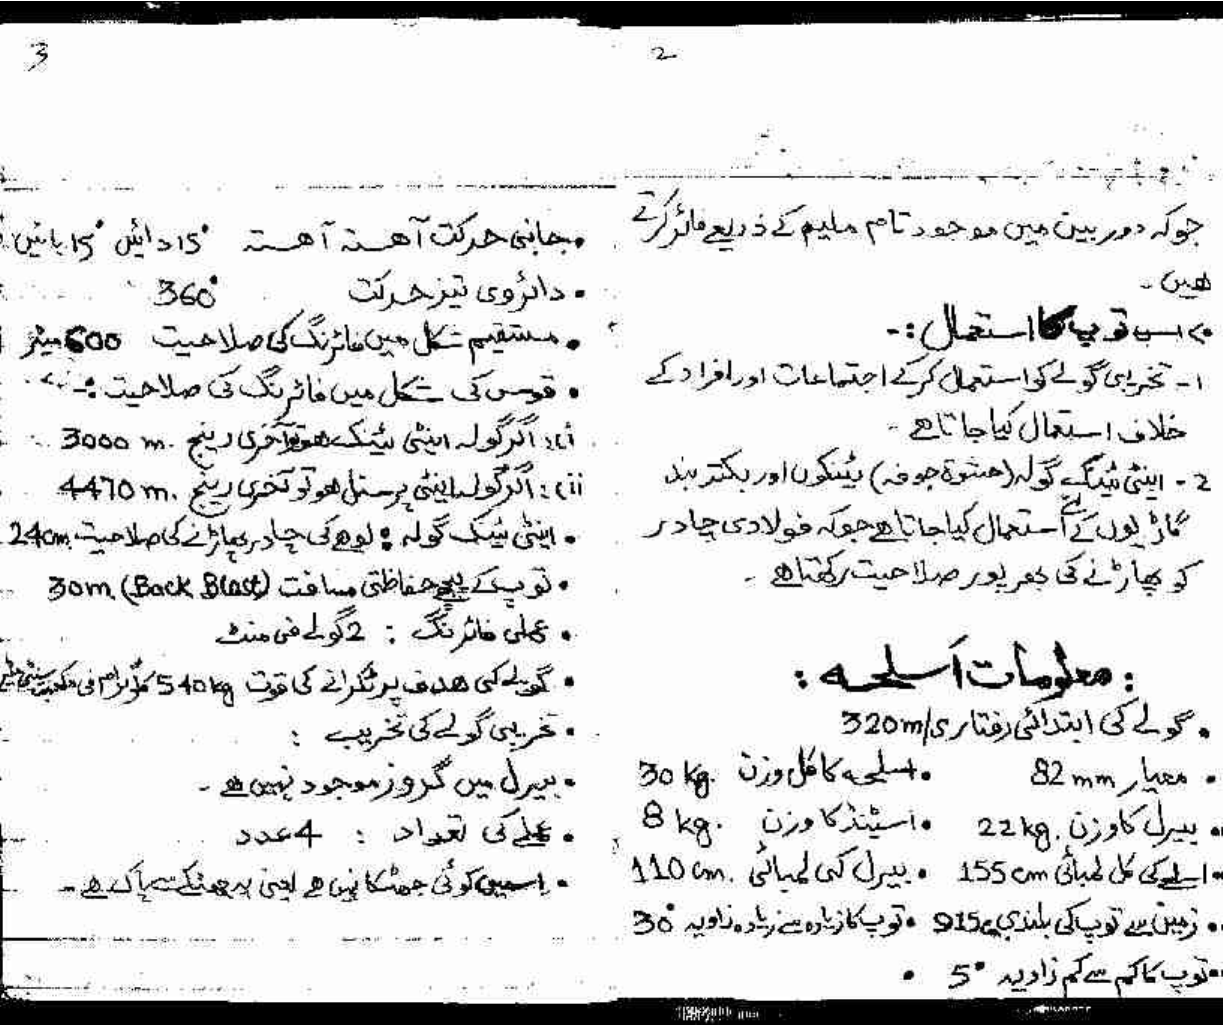 2
جوکہ دوربین میں موجود تام ملیم کے ذریعے فائر کرتے
ھیں۔
اس توپ کا استعمال :-
1- تخریبی گولے کو استعمال کرکے اجتماعات اور افراد کے
خلاف استعمال کیا جاتا ھے۔
2- اینٹی ٹینک گولہ (حشوۃ جوفہ) ٹینکوں اور بکتر بند
گاڑیوں کے لئے استعمال کیا جاتا ھے جوکہ فولادی چادر
کو پھاڑنے کی بھرپور صلاحیت رکھتا ھے۔
: معلومات اسلحہ :
• گولے کی ابتدائی رفتار 320m/s
• معیار 82 mm • اسلحہ کا کل وزن 30 kg.
• بیرل کا وزن 22 kg. • اسٹینڈ کا وزن 8 kg.
• اسلحے کی کل لمبائی 155 cm • بیرل کی لمبائی 110 cm.
• زمین سے توپ کی بلندی 915 • توپ کا زیادہ سے زیادہ زاویہ 30°
• توپ کا کم سے کم زاویہ 5° •
3
• جانبی حرکت آھستہ آھستہ 15° دائیں 15° بائیں
• دائروی تیز حرکت 360°
• مستقیم شکل میں فائرنگ کی صلاحیت 600 میٹر
• قوس کی شکل میں فائرنگ کی صلاحیت :-
(i): اگر گولہ اینٹی ٹینک ھو تو آخری رینج 3000 m.
(ii): اگر گولہ اینٹی پرسنل ھو تو آخری رینج 4470 m.
• اینٹی ٹینک گولہ : لوھے کی چادر پھاڑنے کی صلاحیت 24cm
• توپ کے پیچھے حفاظتی مسافت (Back Blast) 30m
• عملی فائرنگ : 2 گولے فی منٹ
• گولے کی ھدف پر ٹکرانے کی قوت 540 kg کلوگرام فی مکعب سینٹی میٹر
• تخریبی گولے کی تخریب :
• بیرل میں گروز موجود نہیں ھے۔
• عملے کی تعداد : 4 عدد
• اسمیں کوئی جھٹکا نہیں ھے یعنی یہ جھٹکے سے پاک ھے۔